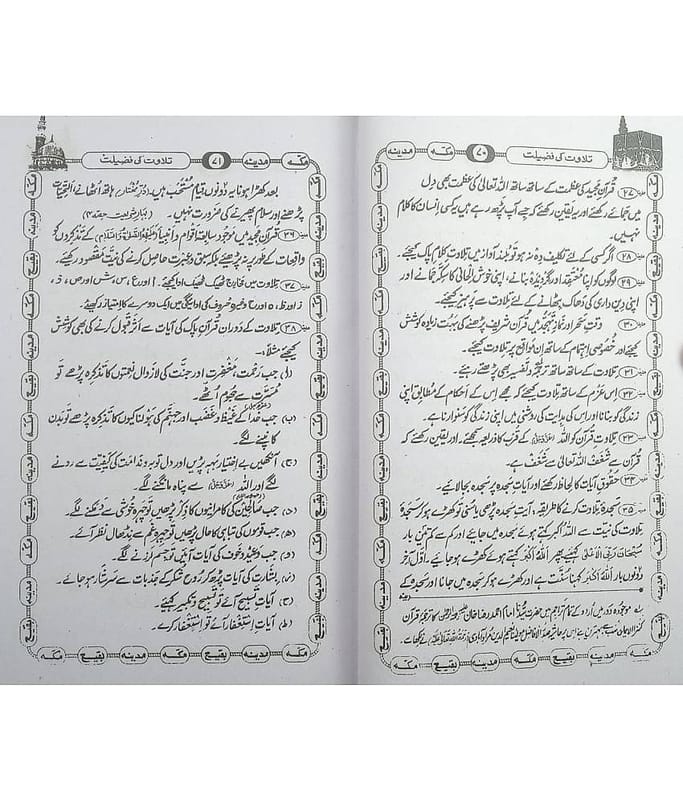 مدینہ مکّہ ۷۰ تلاوت کی فضیلت
﴿۲۷﴾ قُرآنِ مجید کی عظمت کے ساتھ ساتھ اللہ تعالٰی کی عظمت بھی دِل
میں جمائے رکھئے اور یہ یقین رکھئے کہ جسے آپ پڑھ رہے ہیں یہ کسی انسان کا کلام
نہیں۔
﴿۲۸﴾ اگر کسی کے لئے تکلیف دِہ نہ ہو تو بلند آواز میں تلاوتِ کلامِ پاک کیجئے۔
﴿۲۹﴾ لوگوں کو اپنا مُعتَقِد اور گرْوِیدَہ بنانے، اپنی خوش اِلحانی کا سِکّہ جمانے اور
اپنی دِین داری کی دَھاک بٹھانے کے لئے تِلاوت سے پرہیز کیجئے۔
﴿۳۰﴾ وقتِ سَحر اور نمازِ تَہَجُّد میں قُرآن شریف پڑھنے کی بہت زیادہ کوشش
کیجئے اور خُصُوصی اِہتِمام کے ساتھ اِن مواقع پر تِلاوت کیجئے۔
﴿۳۱﴾ تِلاوت کے ساتھ ساتھ ترجمہ و تفسیر بھی پڑھئے۔
﴿۳۲﴾ اِس عَزْم کے ساتھ تلاوت کیجئے کہ مجھے اِس کے اَحکام کے مُطابق اپنی
زِندگی کو بنانا اور اس کی ہدایت کی روشنی میں اپنی زندگی کو سنوارنا ہے۔
﴿۳۳﴾ تِلاوتِ قرآن کو اللہ کے قُرب کا ذریعہ سمجھئے اور یقین رکھئے کہ
قُرآن سے شَغَف اللہ تعالٰی سے شَغَف ہے۔
حُقوقِ آیات کا لحاظ رکھئے اور آیاتِ سجدہ پر سَجدہ بجا لائیے۔
﴿۳۵﴾ سَجدۂ تِلاوت کرنے کا طریقہ، آیتِ سجدہ پڑھی یا سُنی تو کھڑے ہو کر سَجدۂ
تِلاوت کی نیت سے اللہ اکبر کہتے ہوئے سَجدہ میں جائیے اور کم سے کم تین بار
سُبْحَانَ رَبِّیَ الْاَعْلٰی کہئے پھر اَللہُ اَکْبَر کہتے ہوئے کھڑے ہو جائیے۔ اوّل آخر
دونوں بار اَللہُ اَکْبَر کہنا سُنّت ہے اور کھڑے ہو کر سجدہ میں جانا اور سَجدہ کے
۱؎ موجودہ دور میں اُردو کے تمام تراجم میں حضرت سیّدُنا امام احمد رضا خان کا ترجمۂ قرآن
کنز الایمان سب سے بہتر
مکّہ مدینہ ۷۱ تلاوت کی فضیلت
بعد کھڑا ہونا یہ دونوں قیام مُستحَب ہیں۔ (دُرِّمُختار) ہاتھ اُٹھانے اَلتَّحِیَّات
پڑھنے اور سلام پھیرنے کی ضرورت نہیں۔ (بہارِ شریعت حصّہ ۴)
قرآنِ مجید میں موجود سابقہ اقوام و اَنبِیا کے تَذکِروں کو
واقعات کے طور پر نہ پڑھئے بلکہ سبق و عِبرت حاصل کرنے کی نیّت مقصُود رکھئے۔
تِلاوت میں مخارج ٹھیک ٹھیک ادا کیجئے۔ ا اور ع، س، ش اور ص، ذ،
ز اور ظ، ہ اور ح وغیرہ حُروف کی ادائیگی میں ایک دوسرے کا اِمتیاز رکھئے۔
﴿۳۸﴾ تِلاوت کے دَوران قُرآنِ پاک کی آیات سے اَثر قبول کرنے کی بھی کوشش
کیجئے مثلاً:۔
﴿ا﴾ جب رَحمت، مَغفِرت اور جنّت کی لازوال نِعمتوں کا تَذکِرہ پڑھے تو
مُسَرَّت سے جھوم اُٹھے۔
﴿ب﴾ جب خُدا کے غَیظ و غَضَب اور جہنّم کی ہولناکیوں کا تذکرہ پڑھے تو بدن
کانپنے لگے۔
﴿ج﴾ آنکھیں بے اِختیار بہہ پڑیں اور دل توبہ و ندامت کی کیفیت سے رونے
لگے اور اللہ سے پناہ مانگنے لگے۔
﴿د﴾ جب صالحین کی کامرانیوں کا ذِکر پڑھیں تو چہرہ خوشی سے دَمکنے لگے۔
﴿ہ﴾ جب قوموں کی تباہی کا حال پڑھیں تو چہرہ غم سے نِڈھال نظر آئے۔
﴿و﴾ جب وَعید و خوف کی آیات آئیں تو جسم لرزنے لگے۔
﴿ز﴾ بِشارت کی آیات پڑھ کر رُوح شُکر کے جذبات سے سَرشار ہو جائے۔
﴿ح﴾ آیاتِ تسبیح آئے تو تَسبیح و تکبیر کہئے۔
﴿ط﴾ آیاتِ اِستِغفار آئے تو اِستِغفار کرے۔